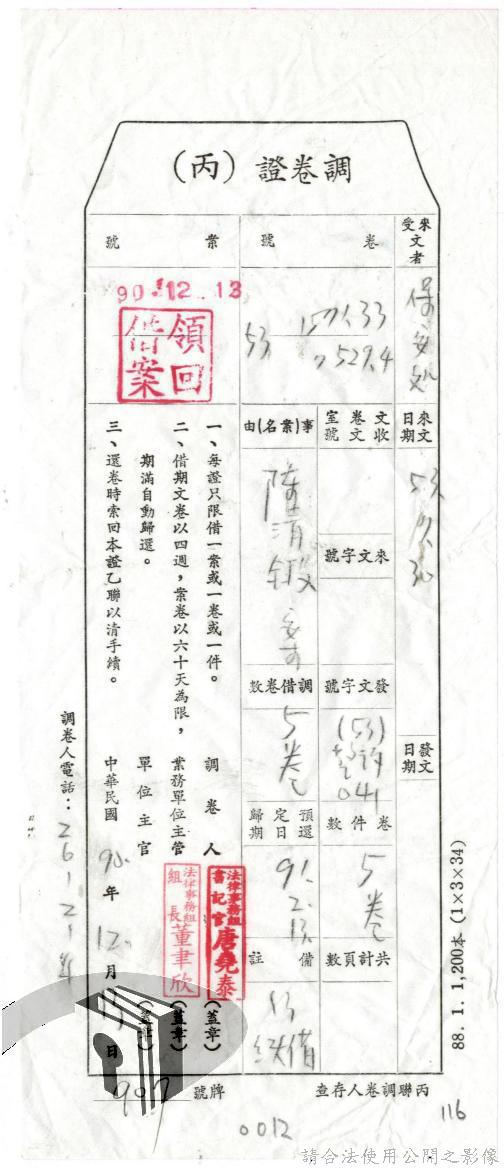 調卷證（丙）
來文
受者
卷號
案號
保安處
1571.33
53
7529.4
90.12.13
領回
借案
來文
日期
收文
文卷
號室
事(案名)由
53
來文字號
一、每證只限借一案或一卷或一件。
二、借期文卷以四週，案卷以六十天為限，
期滿自動歸還。
三、還卷時索回本證乙聯以清手續。
發文
日期
發文字號
(53)
041
調借卷數
5卷
卷件數
5卷
預定歸
還日期
91.
2.
13.
共計頁數
備註
續借
調卷人
法律事務組
書記官 唐堯泰
(蓋章)
業務單位主管
法律事務組
組長 董聿欣
(蓋章)
單位主官
(蓋章)
中華民國 90年 12月 13日
調卷人電話：
丙聯調卷人存查
號牌
907
0012
116
88. 1. 1,200本 (1×3×34)
請合法使用公開之影像